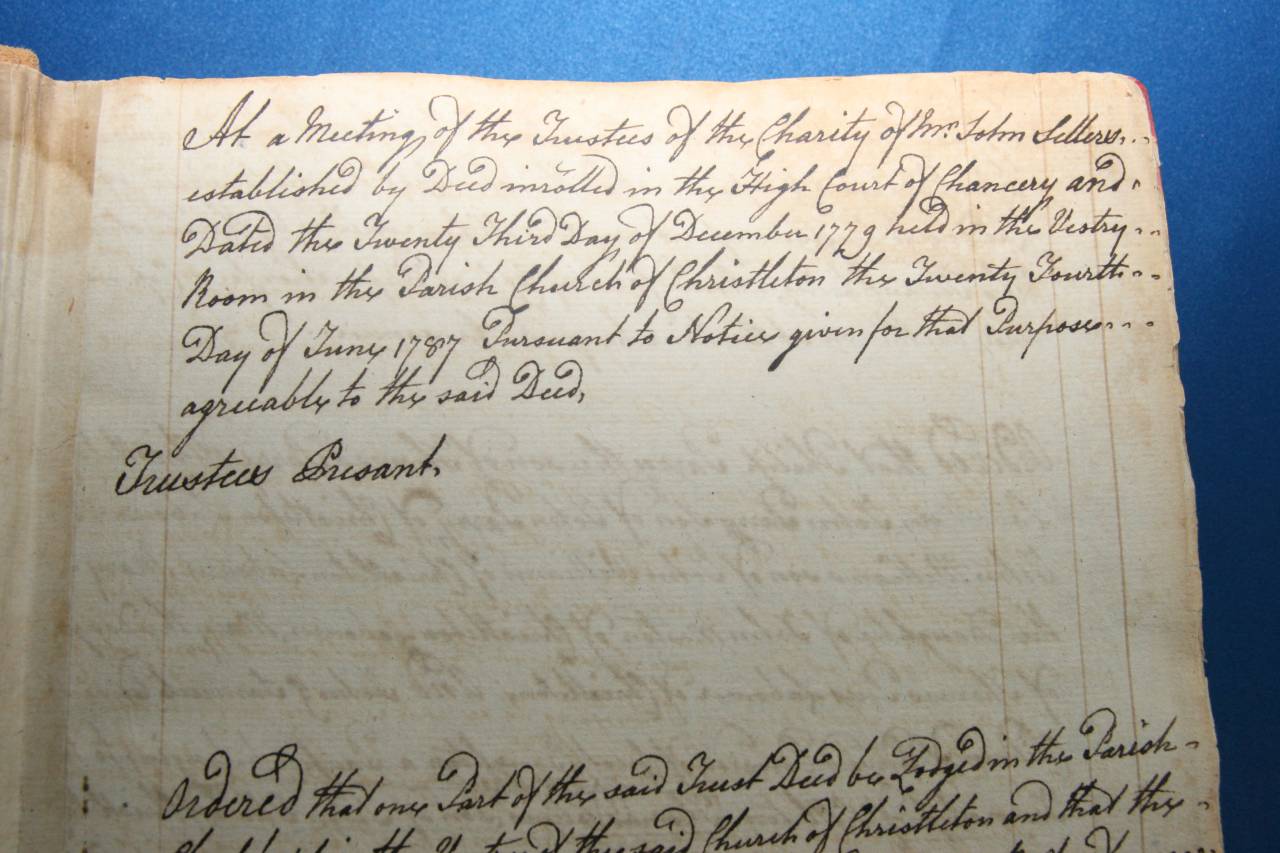 At a Meeting of the Trustees of the Charity of Mr. John Sellers
established by Deed inrolled in the High Court of Chancery and
Dated the Twenty Third Day of December 1779 held in the Vestry
Room in the Parish Church of Christleton the Twenty Fourth
Day of June 1787 Pursuant to Notice given for that Purpose
agreeable to the said Deed,
Trustees Presant.
Ordered that one Part of the said Trust Deed be Lodged in the Parish
in the Vestry of the said Church of Christleton and that the